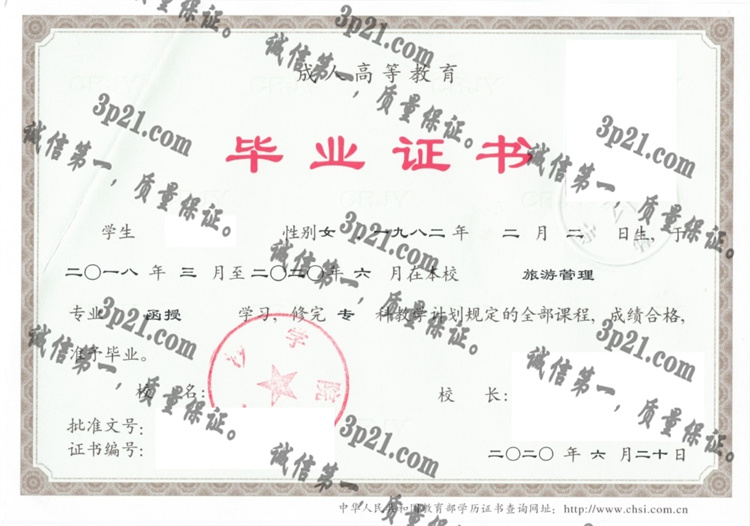 3p21.com
诚信第一，质量保证。
成人高等教育
毕业证书
学生 性别 女 一九八二年 二月 二 日生，于
二〇一八 年 三 月至 二〇二〇 年 六 月在本校 旅游管理
专业 函授 学习，修完 专 科教学计划规定的全部课程，成绩合格，
准予毕业。
校 名： 校 长：
批准文号：
证书编号： 二〇二〇 年 六 月 二十 日
中华人民共和国教育部学历证书查询网址：http://www.chsi.com.cn
学院
3p21.com
诚信第一，质量保证。
3p21.com
诚信第一，质量保证。
3p21.com
诚信第一，质量保证。
3p21.com
诚信第一，质量保证。
3p21.com
诚信第一，质量保证。
3p21.com
诚信第一，质量保证。
3p21.com
诚信第一，质量保证。